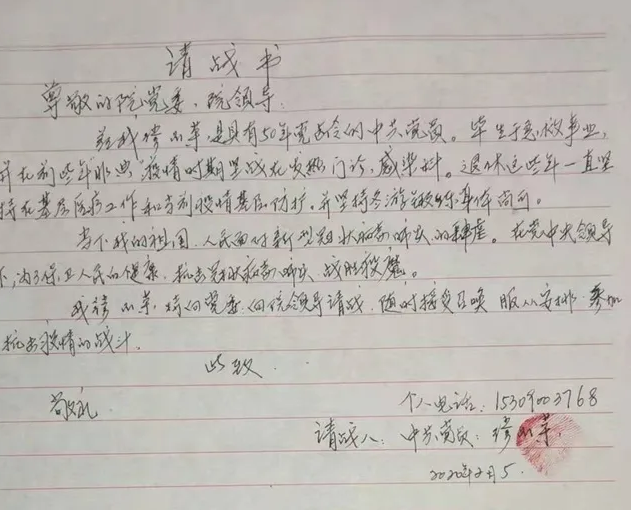 请战书
尊敬的院党委、院领导:
兹我 小荣,是具有50年党龄的中共党员。毕生于急救事业,
并在前些年非典疫情时期坚战在发热门诊,感染科。退休这些年一直坚
持在基层医疗工作和当前疫情基层防护。并坚持冬游锻练身体尚可。
当下我的祖国,人民面对新型冠状病毒肺炎的肆虐。在党中央领导
下,为了保卫人民的健康,抗击冠状病毒肺炎,战胜疫魔。
我 小荣,特向党委、向院领导请战,随时接受召唤 服从安排 参加
抗击疫情的战斗.
此致.
敬礼
个人电话:15309003768
请战人:中共党员: 小荣.
2020年2月5.